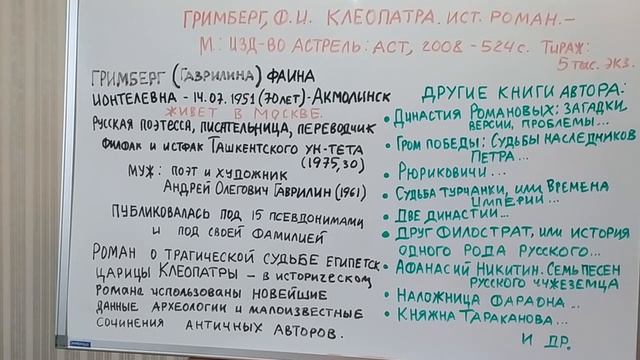 ГРИМБЕРГ, Ф.И. КЛЕОПАТРА. ИСТ. РОМАН.–
М.: ИЗД-ВО АСТРЕЛЬ: АСТ, 2008 - 524 с. ТИРАЖ:
5 ТЫС. ЭКЗ.
ГРИМБЕРГ (ГАВРИЛИНА) ФАИНА
ИОНТЕЛЕВНА - 14.07.1951 (70 ЛЕТ) - АКМОЛИНСК
ЖИВЕТ В МОСКВЕ.
РУССКАЯ ПОЭТЕССА, ПИСАТЕЛЬНИЦА, ПЕРЕВОДЧИК
ФИЛФАК И ИСТФАК ТАШКЕНТСКОГО УН-ТЕТА
(1975, 30)
МУЖ: ПОЭТ И ХУДОЖНИК
АНДРЕЙ ОЛЕГОВИЧ ГАВРИЛИН (1961)
ПУБЛИКОВАЛАСЬ ПОД 15 ПСЕВДОНИМАМИ
И ПОД СВОЕЙ ФАМИЛИЕЙ
РОМАН О ТРАГИЧЕСКОЙ СУДЬБЕ ЕГИПЕТСК
ЦАРИЦЫ КЛЕОПАТРЫ – В ИСТОРИЧЕСКОМ
РОМАНЕ ИСПОЛЬЗОВАНЫ НОВЕЙШИЕ
ДАННЫЕ АРХЕОЛОГИИ И МАЛОИЗВЕСТНЫЕ
СОЧИНЕНИЯ АНТИЧНЫХ АВТОРОВ.
ДРУГИЕ КНИГИ АВТОРА:
• ДИНАСТИЯ РОМАНОВЫХ: ЗАГАДКИ,
ВЕРСИИ, ПРОБЛЕМЫ...
• ГРОМ ПОБЕДЫ: СУДЬБЫ НАСЛЕДНИКОВ
ПЕТРА...
• РЮРИКОВИЧИ...
• СУДЬБА ТУРЧАНКИ, ИЛИ ВРЕМЕНА
ИМПЕРИИ...
• ДВЕ ДИНАСТИИ...
• ДРУГ ФИЛОСТРАТ, ИЛИ ИСТОРИЯ
ОДНОГО РОДА РУССКОГО...
• АФАНАСИЙ НИКИТИН. СЕМЬ ПЕСЕН
РУССКОГО ЧУЖЕЗЕМЦА
• НАЛОЖНИЦА ФАРАОНА...
• КНЯЖНА ТАРАКАНОВА...
И ДР.